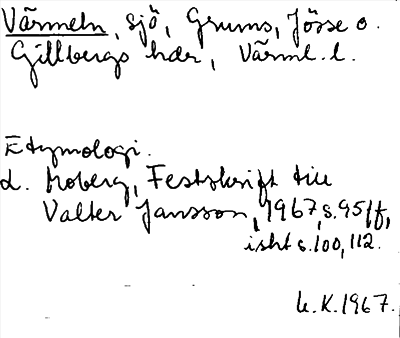 Värmeln, sjö, Grums, Jösse o.
Gillbergs hder, Värml. l.
Etymologi.
L. Moberg, Festskrift till
Valter Jansson, 1967, s. 95 ff,
isht s. 100, 112.
U. K. 1967.